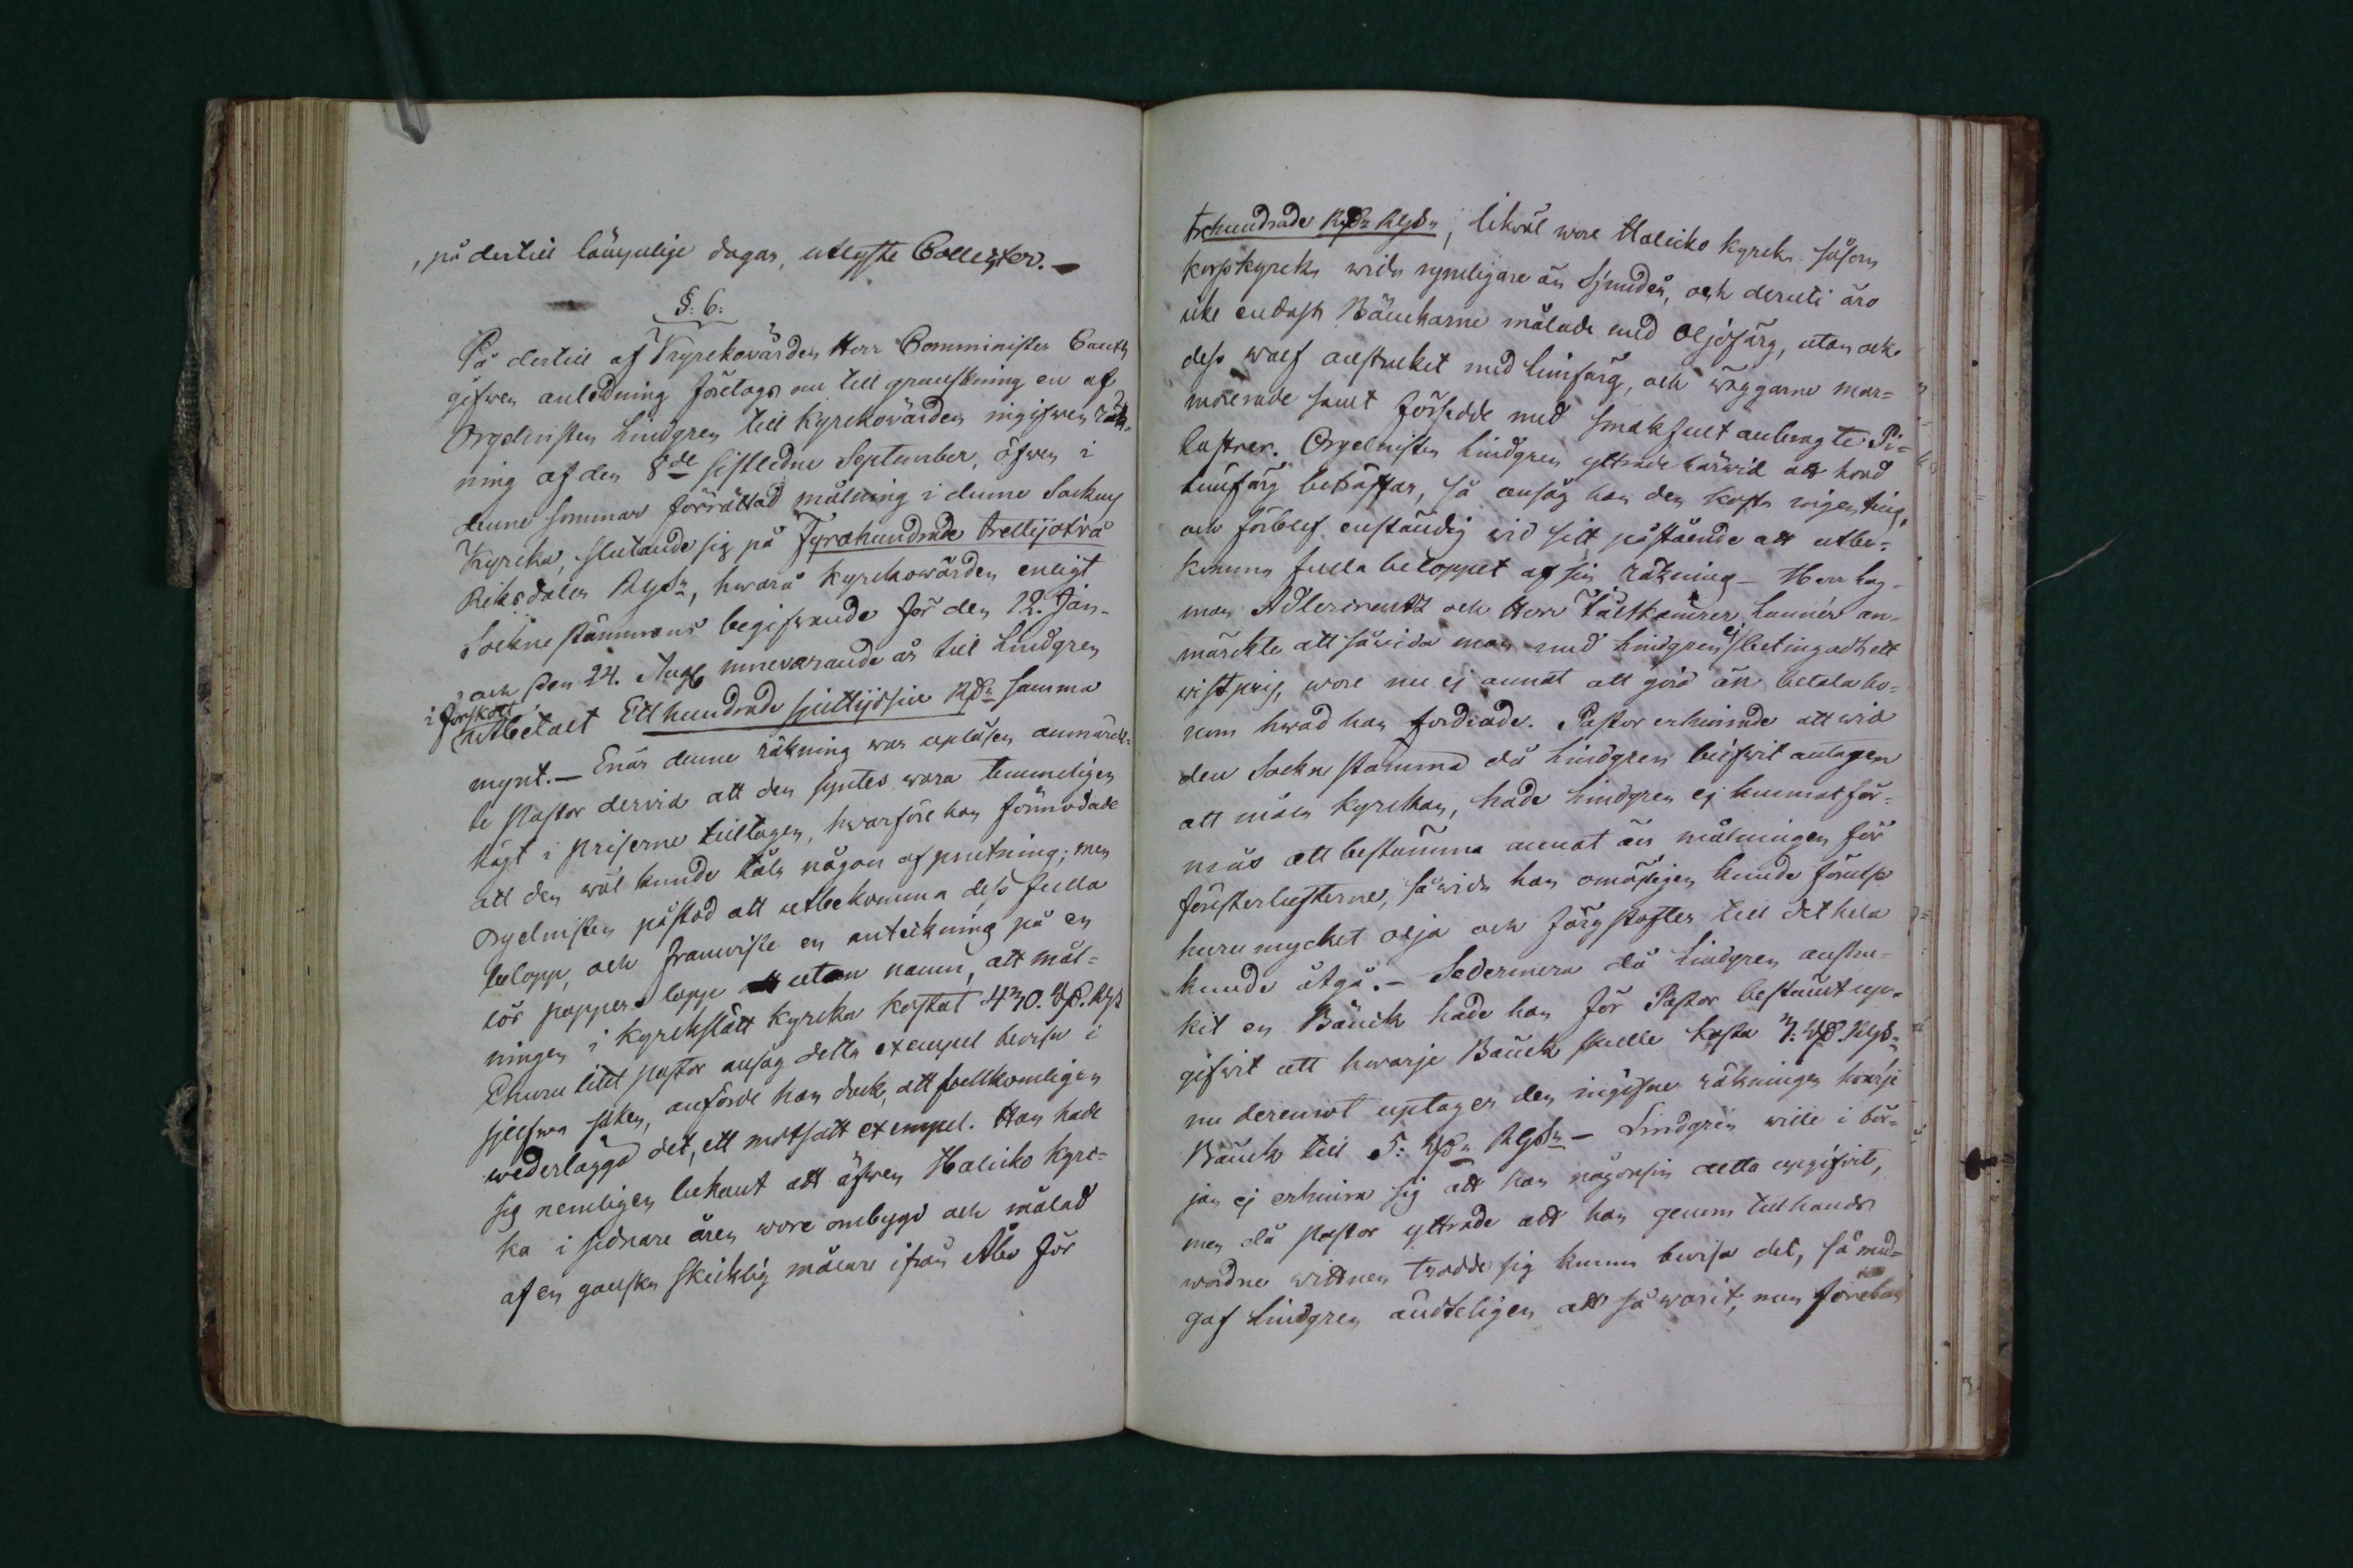 , på dertill lämpelige dagar, utlyste Collecter. —
§. 6.
På dertill af Kyrkovärden Herr Comminister
gifwen anledning företogs nu till granskning en af
Orgelnisten Lindgren till Kyrkovärden ingifwen räk-
ning af den 8de sistledne September, öfwer i
denne sommar förrättad målning i denne Sockens
Kyrcka, slutande sig på Fyrahundrade trettijotvå
Riksdaler RGds, hwarå Kyrckowärden enligt
Sockne stämmans begifwande för den 12. Jan.
och den 24. Aug. innevarande år till Lindgren
i förskott
utbetalt Etthundrade sjuttijosju Rds samma
mynt. — Enär denne räkning war upläsen anmärck-
te Pastor dervid att den syntes wara temmeligen
högt i priserne tilltagen, hwarföre han förmodade
att den wäl kunde tåla någon afprutning; men
Orgelnisten påstod att utbekomma dess fulla
belopp, och framwiste en anteckning på en
lös pappers lapp utan namn, att mål-
ningen i Kyrckslätt Kyrcka kostat 430. Rd. RGs
Ehuru litet pastor ansåg detta exempel bevisa i
sjelfwa saken, anförde han dock, att fullkomligen
wederlägga det, ett motsatt exempel. Han hade
sig nemligen bekant att äfwen Halicko Kyrc-
ka i sednare åren wore ombygd och målad
af en ganska skicklig målare ifrån Åbo för
trehundrade Rds RGds; likväl wore Halicko kyrcka såsom
korskyrcka wida rymligare än Sjundeå, och deruti äro
icke endast Bänckarne målade med Oljefärg, utan ock
dess walf anstrucket med limfärg, och wäggarne mar-
morerade samt försedde med smakfult anbragte Pi-
lastrer. Orgelnisten Lindgren yttrade härwid att hwad
limfärg beträffar, så ansåg han den kosta ingenting,
och förblef enständig wid sitt påstående att utbe-
komma fulla beloppet af sin räkning — Herr Lag-
man Adlercreutz och Herr Fältkamrer Lannér an-
märckte att såwida man med Lindgren ej betingadt ett
wist pris, wore nu ej annat att göra än betala ho-
nom hwad han fordrade. Pastor erhinrade att wid
den Sockne stämma då Lindgren blifwit antagen
att måla kyrckan, hade Lindgren ej kunnat för-
mås att bestämma annat än målningen för
fönsterlufterne, såwida han omöjligen kunde förutse
huru mycket olja och färg stofter till det hela
kunde åtgå. — Sedermera då Lindgren anstru-
kit en Bänck hade han för Pastor bestämt upp-
gifwit att hwarje Bänck skulle kosta 3: Rd. RGds
nu deremot uptager den ingifne räkningen hwarje
Bänck till 5: Rds RGds — Lindgren wille i bör-
jan ej erhinra sig att han någonsin detta upgifwit,
men då Pastor yttrade att han genom tillhanda
wordne wittnen trodde sig kunna bevisa det, så med-
gaf Lindgren ändteligen att så warit, men förebar